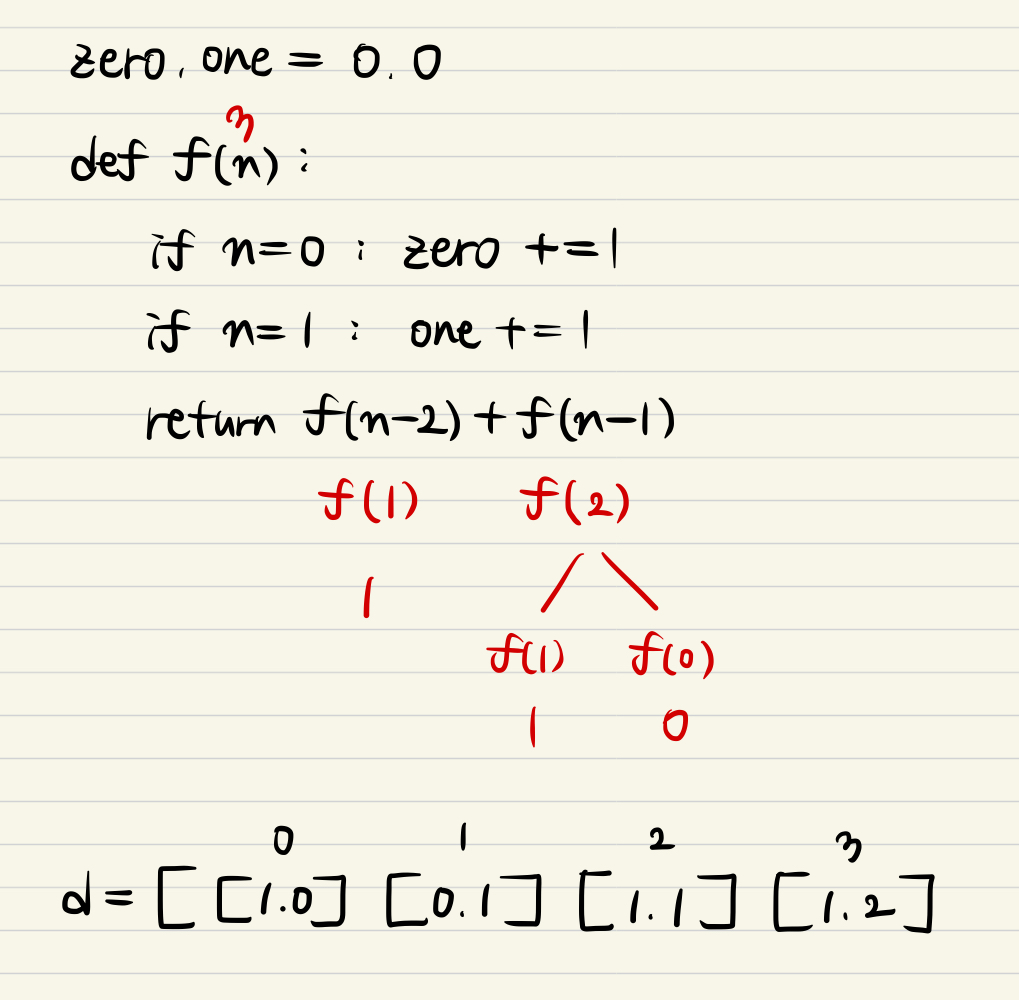 zero, one = 0, 0
3
def f(n):
if n=0 : zero +=1
if n=1 : one +=1
return f(n-2)+f(n-1)
f(1) f(2)
1
f(1) f(0)
1 0
0 1 2 3
d = [ [1.0] [0.1] [1.1] [1.2]